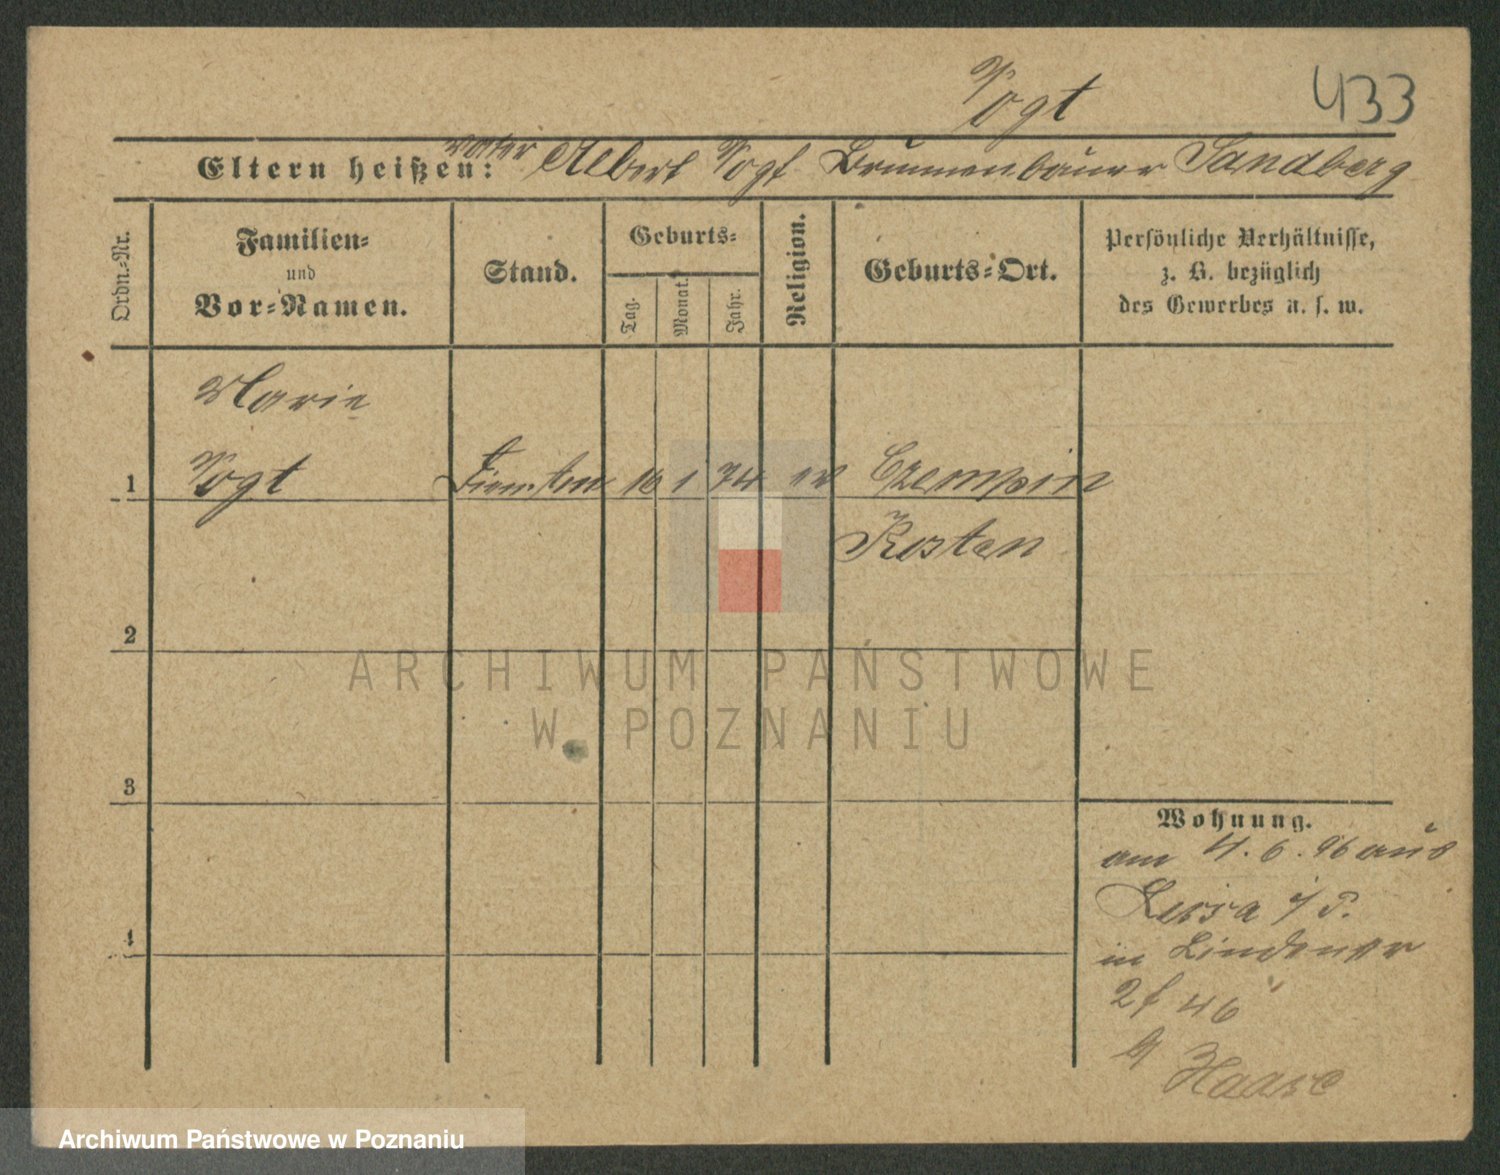 Vogt 433
Eltern heißen: Vater Albert Vogt Brunnenbauer Sandberg
Ordn.-Nr.
Familien-
und
Vor-Namen.
Stand.
Geburts-
Tag.
Monat.
Jahr.
Religion.
Geburts-Ort.
Persönliche Verhältnisse,
z. B. bezüglich
des Gewerbes u. s. w.
Marie
1 Vogt 16 1 74 Czempin
Kosten
2
ARCHIWUM PAŃSTWOWE
W POZNANIU
3
Wohnung.
am 4. 6. 96 aus
Lissa i/P.
4
in Lindenstr
2 46
b/ Haase
Archiwum Państwowe w Poznaniu